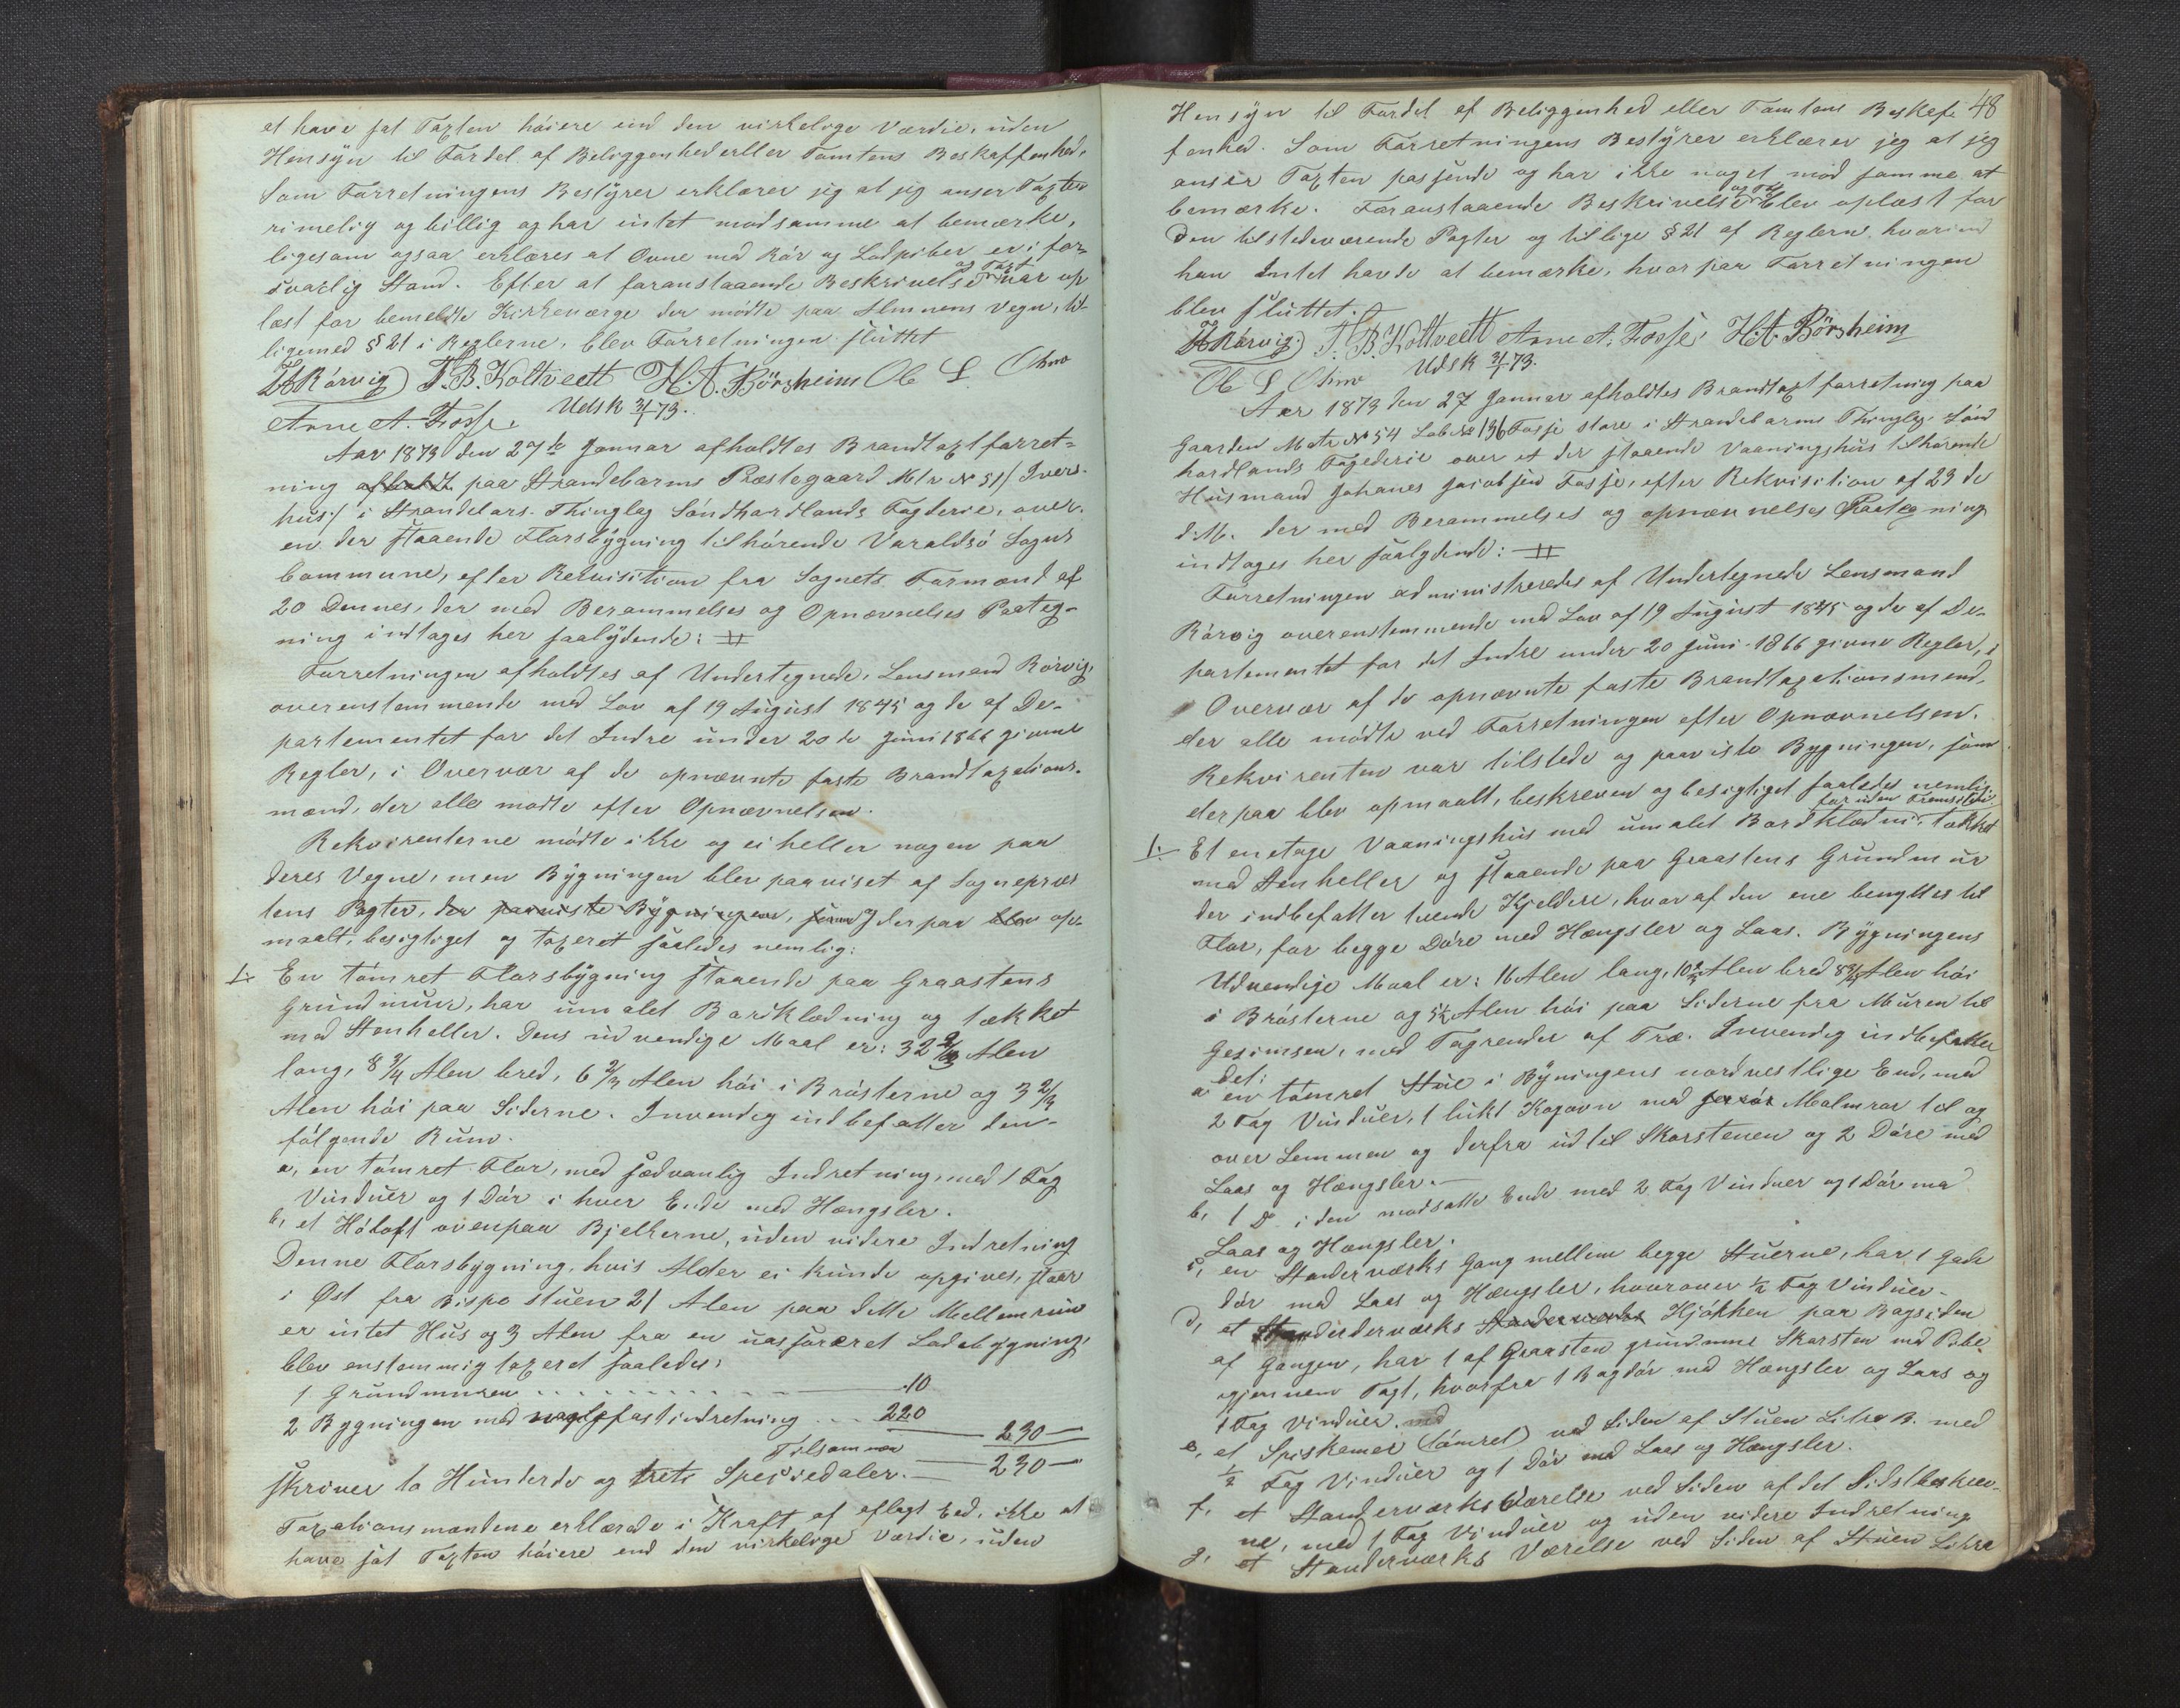 at have sat Taxten höiere end den virkelige Værdie, uden
Hensyn til Fordel af Beliggenhed eller Tomtens Beskaffenhed.
Som Forretningens Bestÿrer erklærer jeg at jeg anser Taxten
rimelig og billig og har intet mod samme at bemærke,
ligesom ogsaa erklæres at Ovne med Rör og Ladpiber er i for-
svarlig Stand. Efter at foranstaaende Beskrivelse og Taxt var op
læst for bemeldte Kirkeværge der mödte paa Almuens Vegn, til-
ligemed § 21 i Reglerne, blev Forretningen sluttet
Rörvig J. B. Koltveett H. A. Börsheim Ole L Omo
Arne A. Fosse. Udsk 3/1 73.
Aar 1873 den 27de Januar afholdtes Brandtaxtforret-
ning afholdt paa Strandebarms Præstegaard Mtr No 51 / Tvers-
hus / i Strandebars. Thinglag Söndhordlands Fogderie, over
en der staaende Florsbÿgning tilhörende Varaldsö Sogns
Commune, efter Rekvisition fra Sognets Formænd af
20 Dennes, der med Berammelses og Opnævnelses Paateg-
ning indtages her saalÿdende: #
Forretningen afholdtes af Undertegnede, Lensmand Rörvig,
overenstemmende med Lov af 19 August 1845 og de af De-
partementet for det Indre under 20de Juni 1866 givne
Regler, i Overvær af de opnævnte faste Brandtaxations-
mænd, der alle mödte efter Opnævnelsen.
Rekvirenterne mödte ikke og ei heller nogen paa
deres Vegne, men Bÿgningen blev paaviset af Sognepræs
tens Pagter, der paaviste Bÿgningen, som og derpaa blev op-
maalt, besigtiget og taxeret saaledes nemlig:
1. En tömret Florsbÿgning staaende paa Graastens
Grundmur, har umalet Bordklædning og tækket
med Stenheller. Dens udvendige Maal er: 32 2/3 Alen
lang, 8 3/4 Alen bred, 6 2/3 Alen höi i Brösterne og 3 2/3
Alen höi paa Siderne. Invendig indbefatter den
fölgende Rum.
a, en tömret Flor, med sædvanlig Indretning, med 1 Fag
Vinduer og 1 Dör i hver Ende med Hængsler.
b, et Höloft ovenpaa Bjelkerne, uden videre Indretning
Denne Florsbygning, hvis Alder ei kunde opgives, staar
i Øst fra Bispestuen 21 Alen paa dette Mellemrum
er intet Hus og 3 Alen fra en uassureret Ladebÿgning,
blev enstemmig taxeret saaledes:
1 Grundmuren . . . . . . . . 10
2 Bygningen med naglefastindretning . . . 220 230 —
Tilsammen 230 —
skriver to Hunderde og treti Speciedaler. —
Taxationsmændene erklærede i Kraft af aflagt Eed, ikke at
have sat Taxten höiere end den virkelige Værdie, uden
48
Hensÿn til Fordel af Beliggenhed eller Tomtens Beskaf-
fenhed. Som Forretningens Bestÿrer erklærer jeg at jeg
anser Taxten passende og har ikke noget mod samme at
bemærke. Foranstaaende Beskrivelse og Tax blev oplæst for
den tilstedeværende Pagter og tillige § 21 af Reglern. hvorimod
han Intet havde at bemærke, hvorpaa Forretningen
blev sluttet.
Rörvig J. B. Koltveett Arne A. Fosse. H. A. Börsheim
Ole L Omo Udsk 3/1 73.
Aar 1873 den 27 Januar afholdtes Brandtaxtforretning paa
Gaarden Matr No 54 Løb No 136 Fosse store i Strandebarms Thinglag, Sönd
hordlands Fogederie over et der staaende Vaaningshus tilhörende
Husmand Johanes Jacobsen Fosse, efter Rekvisition af 23 de
d.M. der med Berammelses og opnævnelses Paategning
indtages her saalydende: #
Forretningen administreredes af Undertegnede Lensmand
Rörvig overenstemmende med Lov af 19 August 1845 og de af De-
partementet for det Indre under 20 Juni 1866 givne Regler, i
Overvær af de opnævnte faste Brandtaxationsmænd,
der alle mödte ved Forretningen efter Opnævnelsen.
Rekvirenten var tilstede og paaviste Bygningen, som
derpaa blev opmaalt, beskreven og besigtiget saaledes nemlig:
1. Et enetage Vaaningshus med umalet Bordklædni. for uden Fremsiden. tækket
med Stenheller og staaende paa Graastens Grundmur
der indbefatter tvende Kjeldere, hvoraf den ene benyttes til
Flor, for begge Döre med Hængsler og Laas. Bÿgningens
Udvendige Maal er: 16 Alen lang, 10 Alen bred 8 Alen höi
i Brösterne og 5 1/2 Alen höi paa Siderne fra Muren til
Gesimsen, med Tagrender af Træ. Invendig indbefatter
det:
a en tömret Stue i Bÿningens nordvestlige End, med
2 Fag Vinduer, 1 lukt Kogovn med Malmrör til og
over Lemmen og derfra ud til Skorstenen og 2 Döre med
Laas og Hængsler. —
b, 1 Do i den modsatte Ende med 2 Fag Vinduer og 1 Dör med
Laas og Hængsler.
c, en Standerværks Gang mellem begge Stuerne, har 1 Gade
dör med Laas og Hængsler, hvorover 1/2 Fag Vinduer.
d, et Standerværks Standerværks Kjökken paa Bagsiden
af Gangen, har 1 af Graasten grundmuret Skorsten med Pibe
igjennem Taget, hvorfra 1 Bagdör med Hængsler og Laas og
1 Fag Vinduer.
e, et Spiskamer (tömret) ved Siden af Stuen Litra B. med
1/2 Fag Vinduer og 1 Dör med Laas og Hængsler.
f, et Standerværks Værelse ved Siden af det Sidstbeskrev-
ne, med 1 Fag Vinduer og uden videre Indretning
g, et Standerværks Værelse ved Siden af Stuen Litra